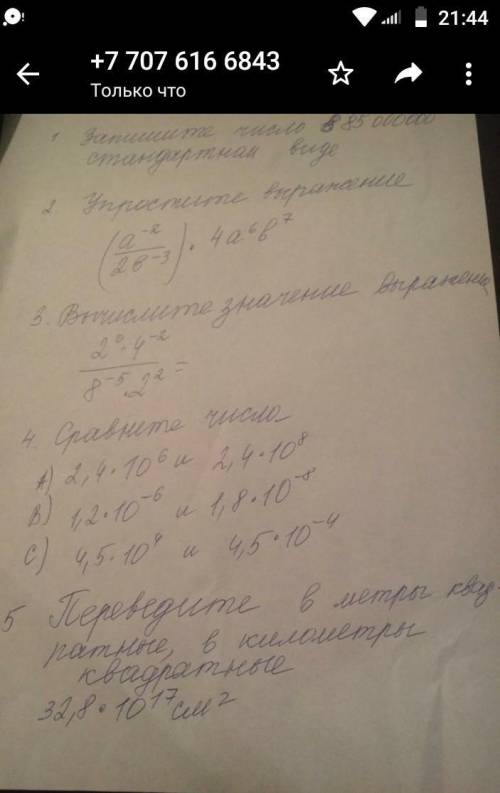 21:44
+7 707 616 6843
Только что
1 Запишите число 85 000000
стандартном виде
2. Упростите выражение
(a⁻²/2b⁻³) · 4a⁶b⁷
3. Вычислите значение выражени
2⁰·4⁻²/8⁻⁵·2² =
4. Сравните числа
A) 2,4·10⁶ и 2,4·10⁸
B) 1,2·10⁻⁶ и 1,8·10⁻⁸
C) 4,5·10⁴ и 4,5·10⁻⁴
5 Переведите в метры квад-
ратные, в километры
квадратные
32,8·10¹⁷см²